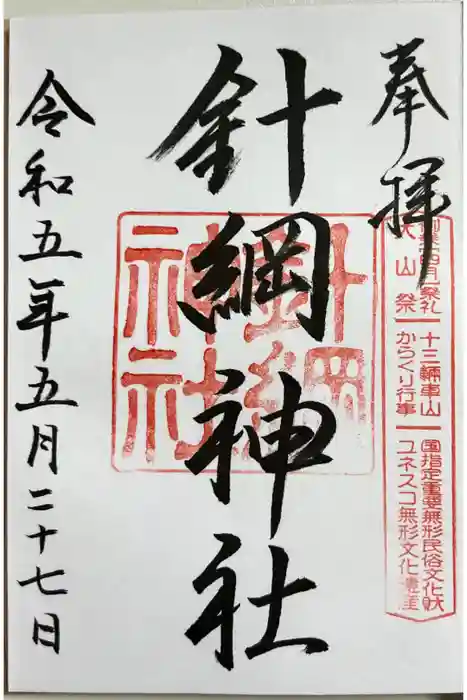 奉拝
創業一四月祭礼
犬山祭
十三輛車山
からくり行事
国指定重要無形民俗文化財
ユネスコ無形文化遺産
針綱神社
針綱神社
令和五年五月二十七日